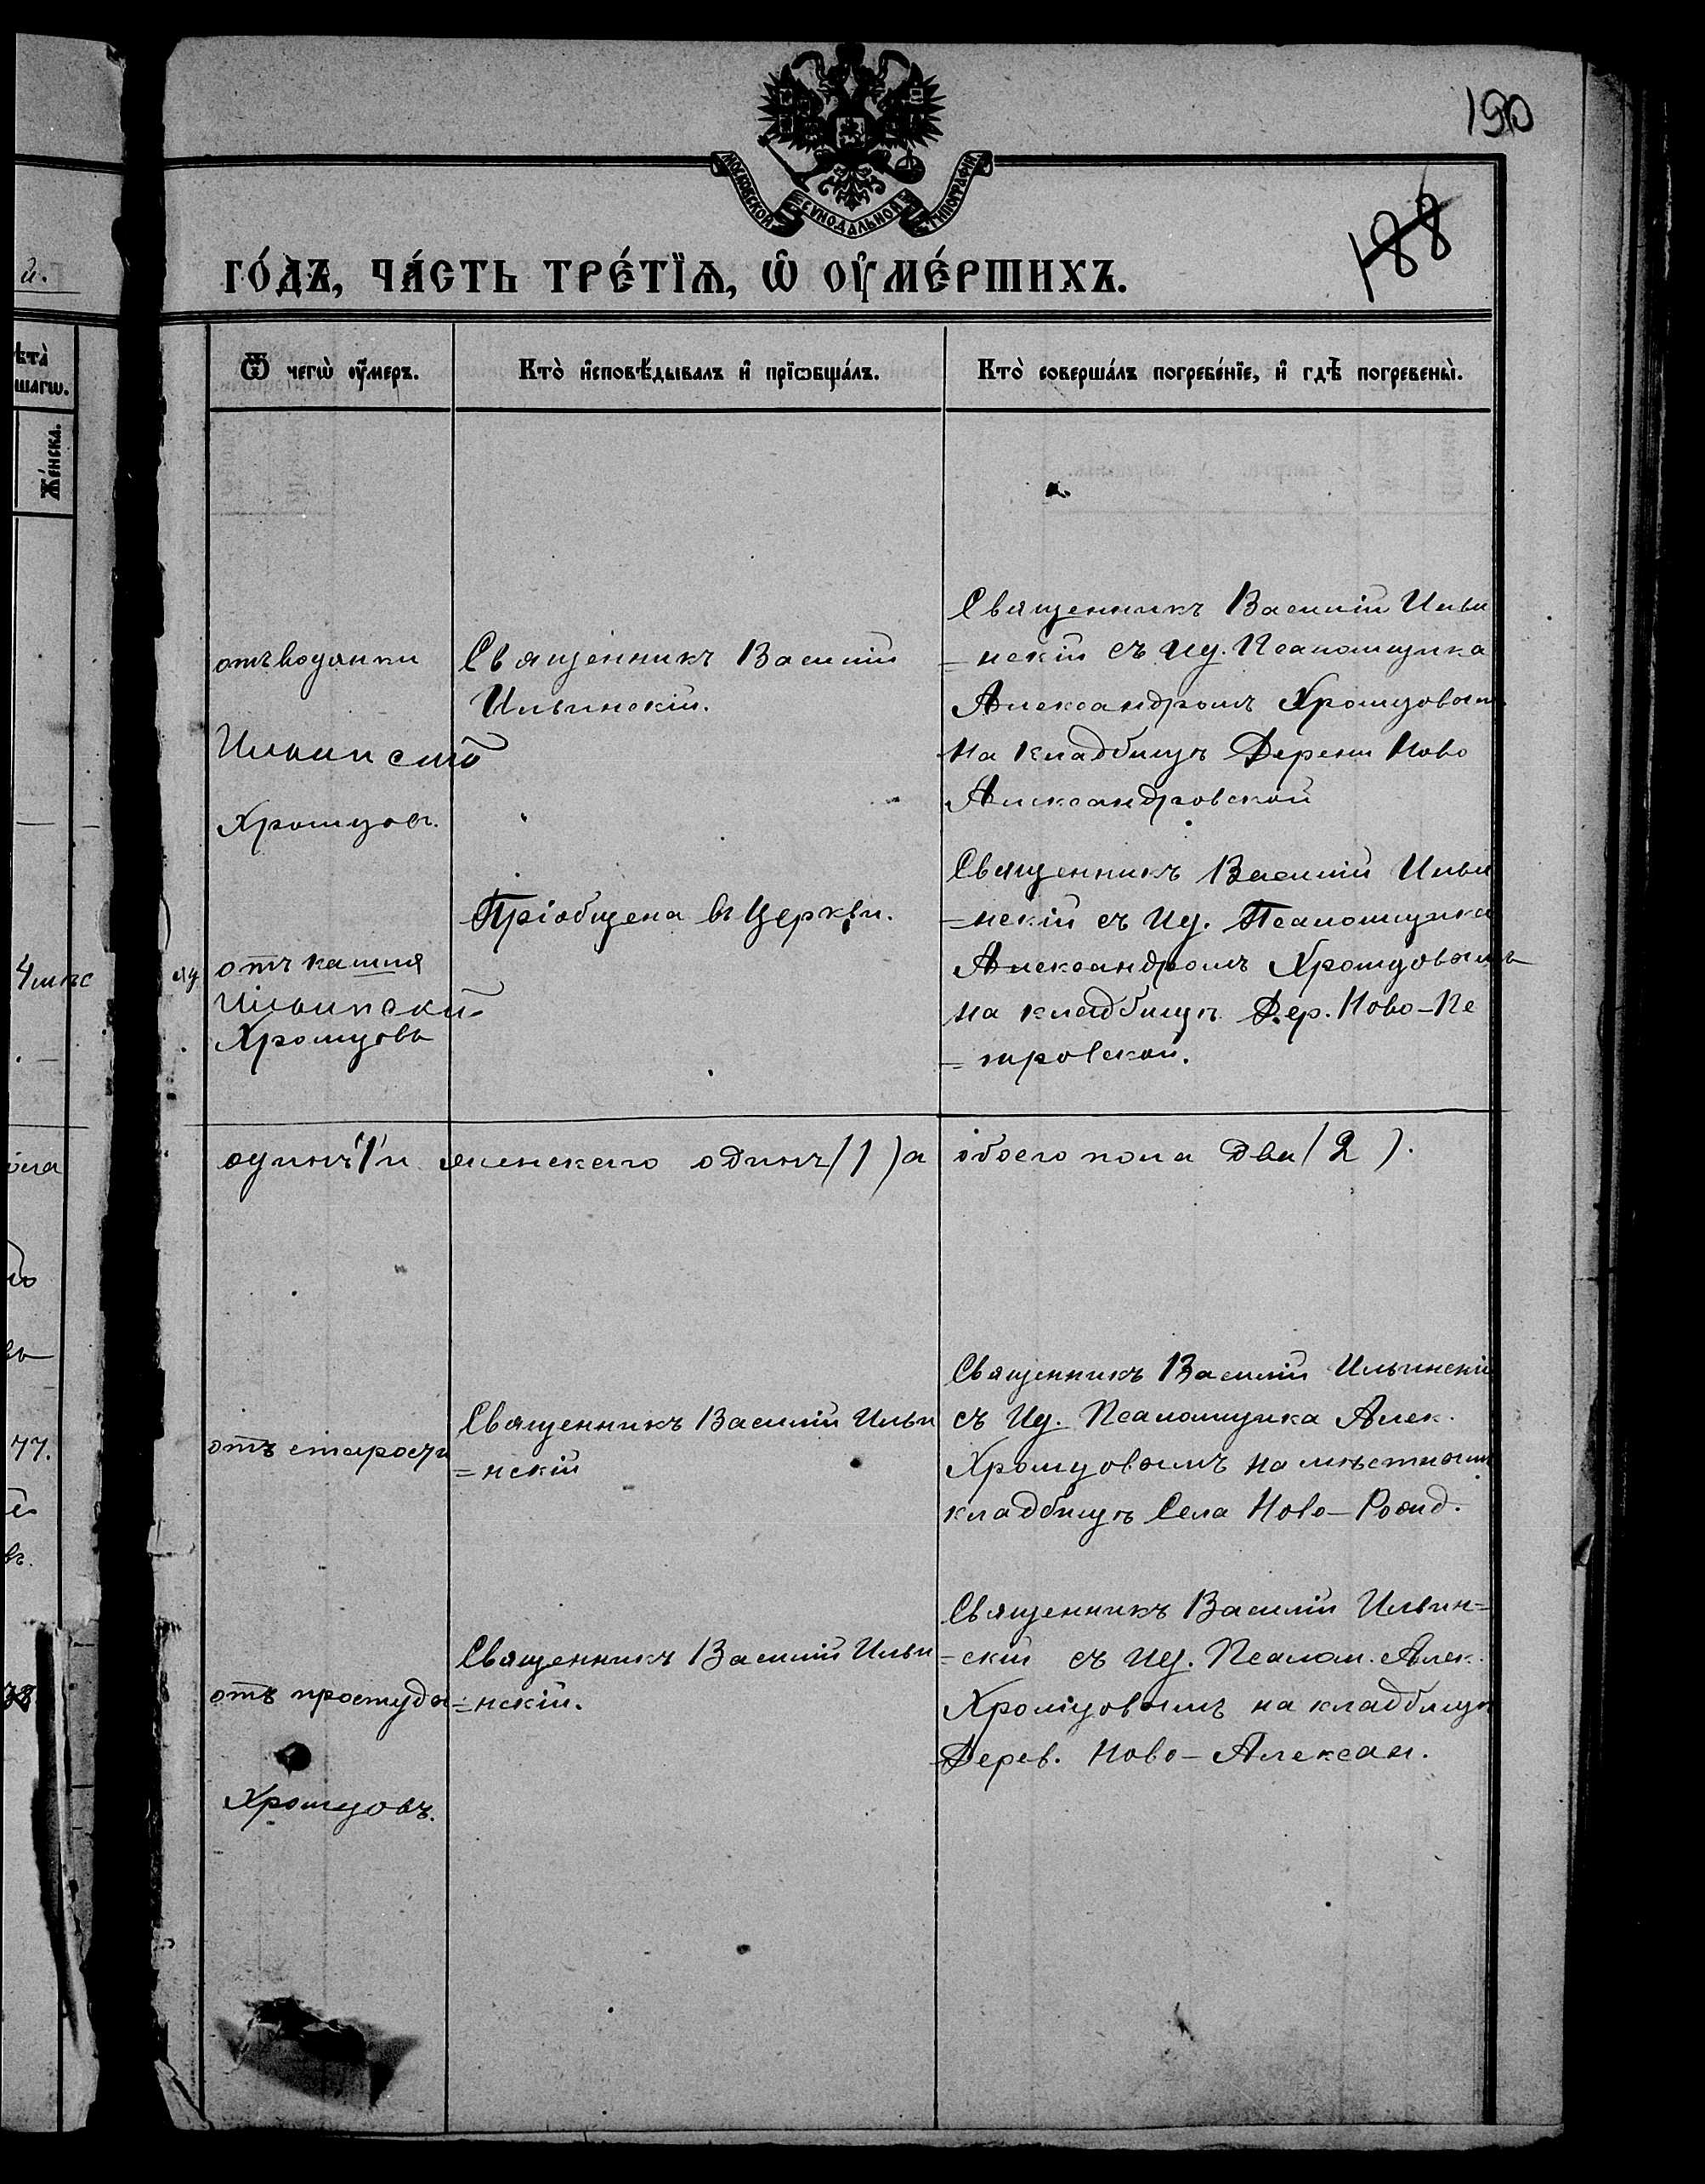 190
188
МОСКОВСКОЙ СѴНОДАЛЬНОЙ ТИПОГРАФІИ
ГО́ДЪ, ЧА́СТЬ ТРЕ́ТЇѦ, Ѡ҆ ОУ҆МЕ́РШИХЪ.
Ѿ чегѡ̀ оу҆́меръ.
Кто̀ и҆сповѣ́дывалъ и҆ прїѡбща́лъ.
Кто̀ соверша́лъ погребе́нїе, и҆ гдѣ̀ погребены̀.
Же́нска.
отъ водянки
Священникъ Василій
Ильинскій.
Священникъ Василій Ильи
=нскій съ Ид. Псаломщика
Александромъ Хромцовым
На кладбищѣ Дерени Ново
Александровской
Ильинскій
Хромцовъ.
4 мѣс
отъ кашля
Пріобщена въ Церкви.
Священникъ Василій Ильи
=нскій съ Ид. Псаломщика
Александромъ Хромцовымъ
на кладбищѣ Дер. Ново-Пе
=тровской.
Ильинский
Хромцовъ
одинъ (1) и женскаго одинъ (1) а обоего пола два (2).
отъ старости
Священникъ Василій Ильи
=нскій
Священникъ Василій Ильинскій
съ Ид. Псаломщика Алек.
Хромцовымъ на мѣстномъ
кладбищѣ Села Ново-Рожд.
77.
отъ простуды
Священникъ Василій Ильи
=нскій.
Священникъ Василій Ильин=
=скій съ Ид. Псалом. Алек.
Хромцовымъ на кладбищѣ
Дерев. Ново-Алексан.
38
Хромцовъ.